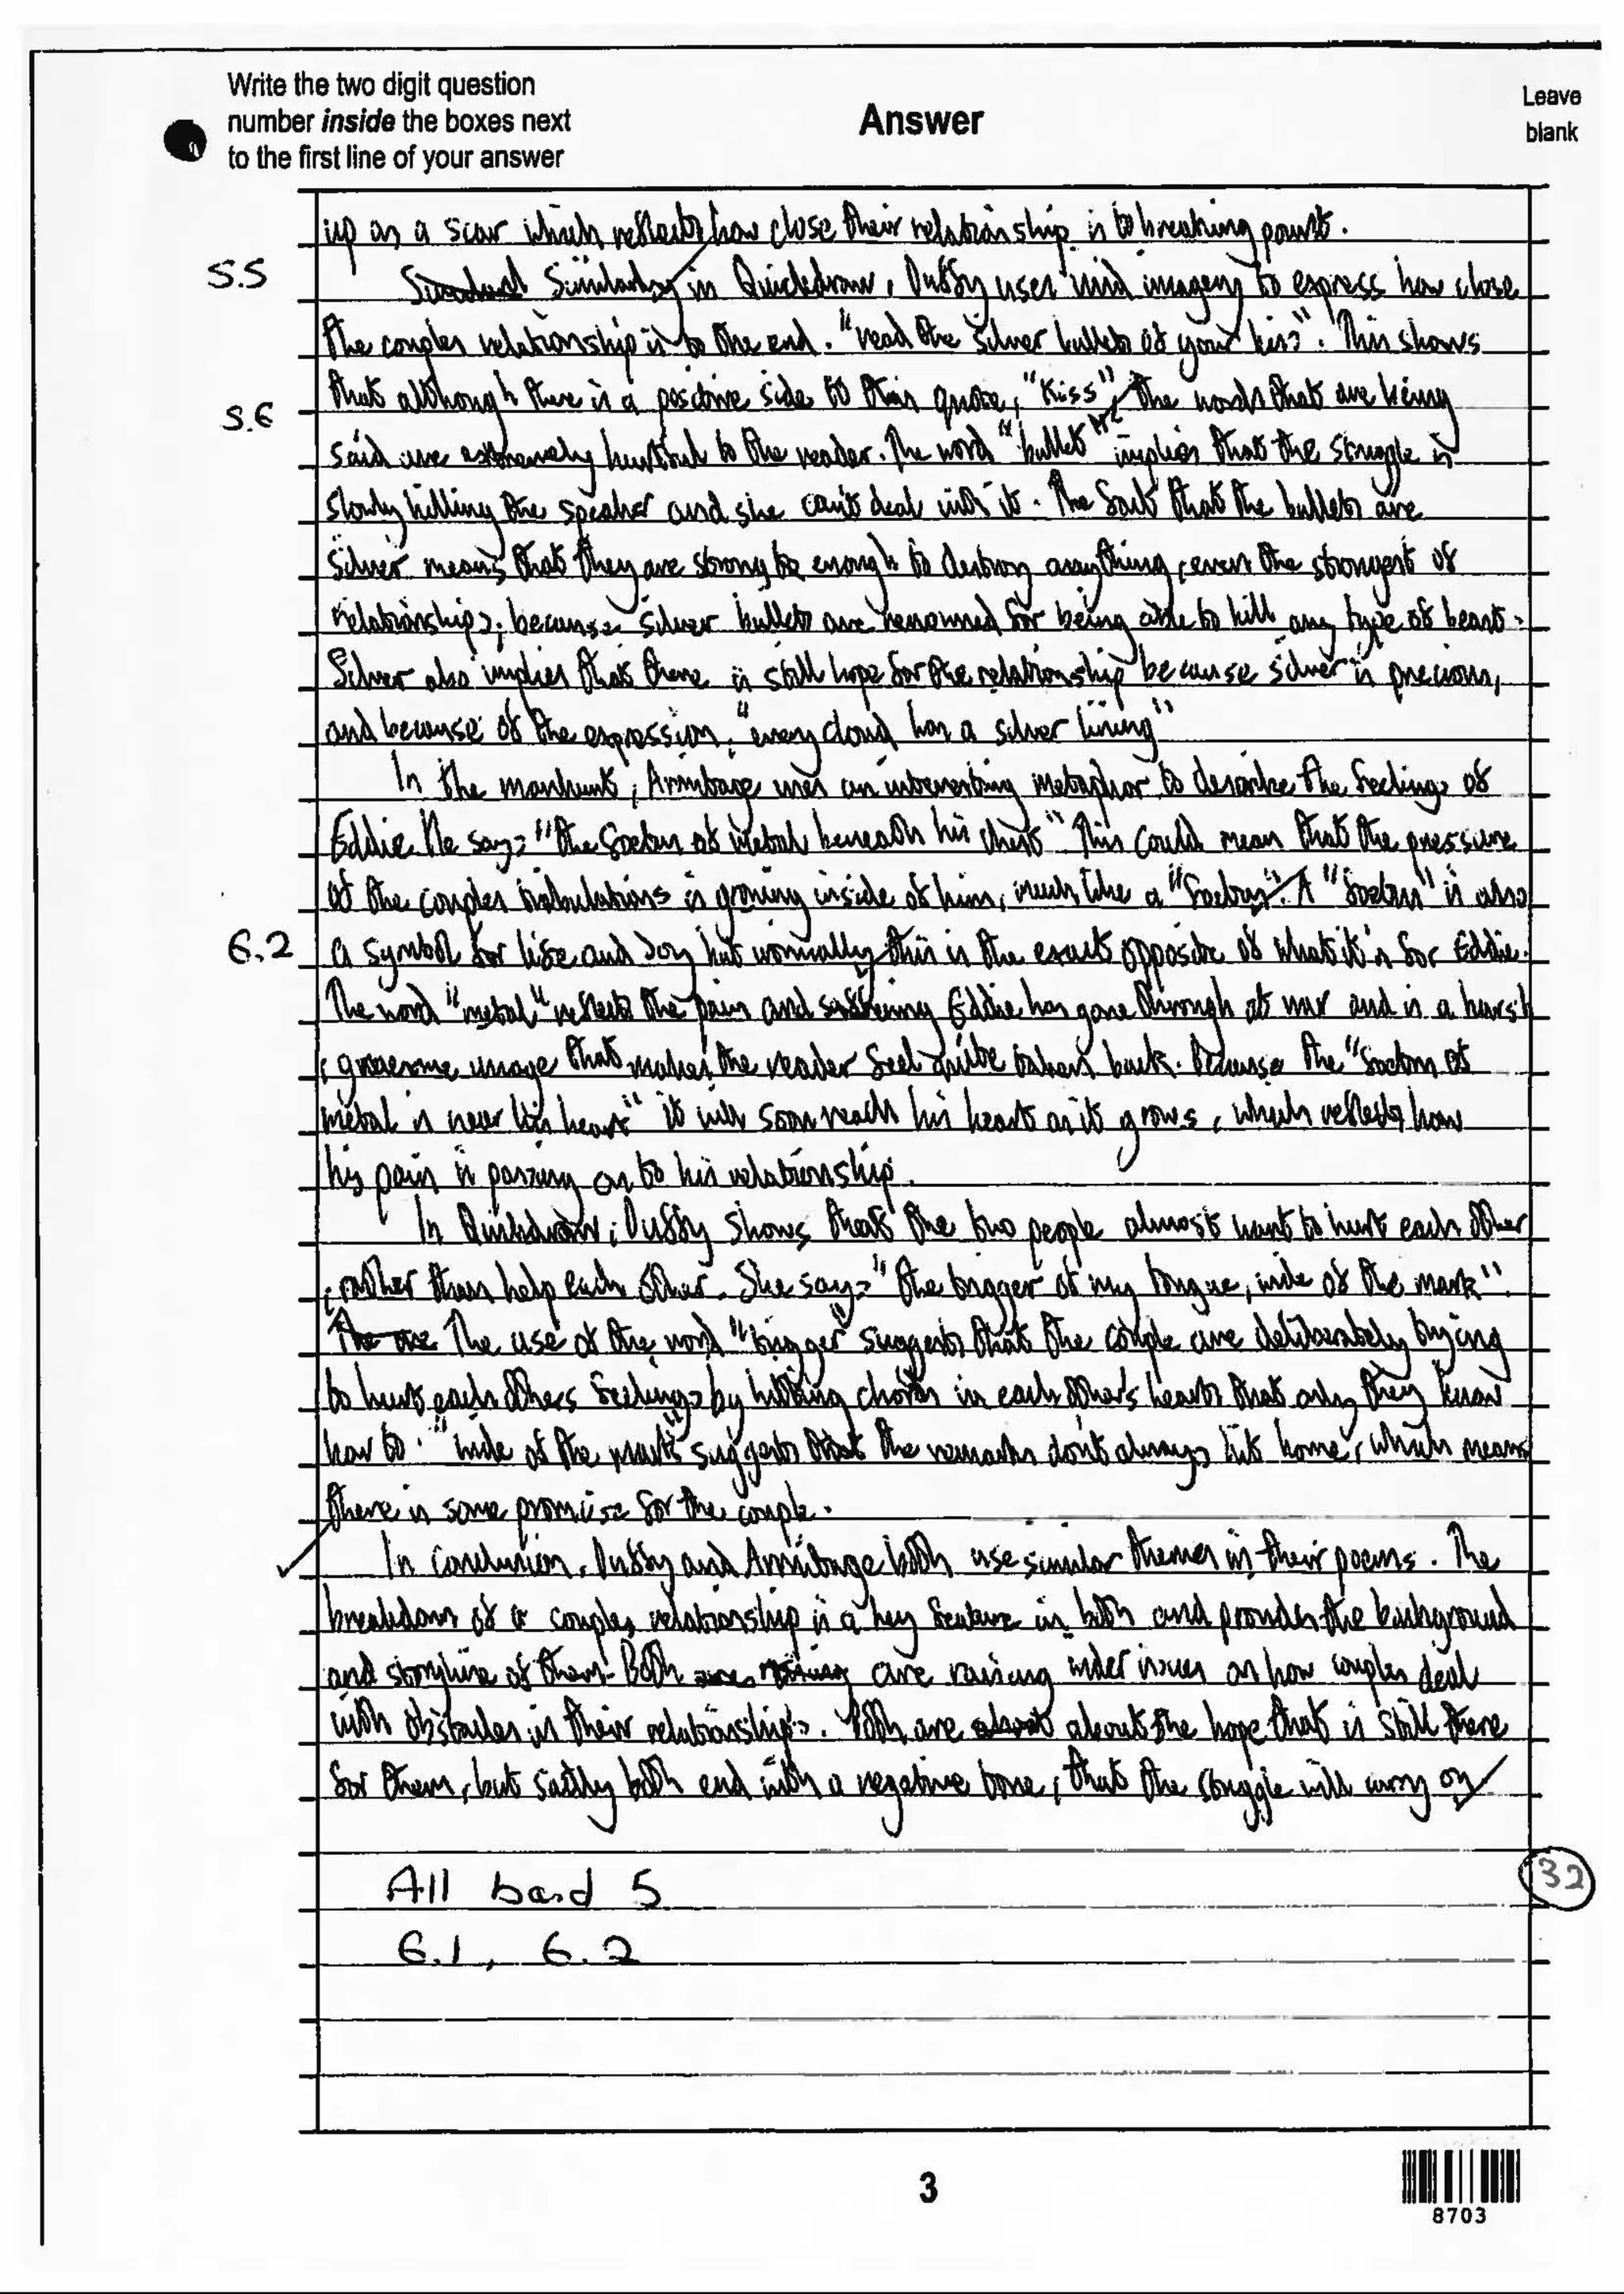 Write the two digit question
number inside the boxes next
to the first line of your answer
Answer
Leave
blank
up as a scar which reflects how close their relationship is to breaking point.
5.5
Similarly in Quickdraw, Duffy uses vivid imagery to express how close
the couples relationship is to the end. "read the silver bullets of your kiss". This shows
that although there is a positive side to this quote, "kiss", the words that are being
5.6
said are extremely hurtful to the reader. The word "bullet" implies that the struggle is
slowly killing the speaker and she can't deal with it. The fact that the bullets are
silver means that they are strong enough to destroy anything, even the strongest of
relationships, because silver bullets are renowned for being able to kill any type of beast.
Silver also implies that there is still hope for the relationship because silver is precious,
and because of the expression, "every cloud has a silver lining"
In the manhunt, Armitage uses an interesting metaphor to describe the feelings of
Eddie. He says "the foetus of metal beneath his chest". This could mean that the pressure
of the couples tribulations is growing inside of him, much like a "foetus". A "foetus" is also
6.2
a symbol for life and joy but normally this is the exact opposite of what it's for Eddie.
The word "metal" reflects the pain and suffering Eddie has gone through at war and is a harsh
, gruesome image that makes the reader feel quite taken back. Because the "foetus of
metal is near his heart" it will soon reach his heart as it grows, which reflects how
his pain is passing on to his relationship.
In Quickdraw, Duffy shows that the two people almost want to hurt each other
, rather than help each other. She says "the trigger of my tongue, wide of the mark".
The use of the word "trigger" suggests that the couple are deliberately trying
to hurt each others feelings by hitting chords in each other's hearts that only they know
how to. "wide of the mark" suggests that the remarks don't always hit home, which means
there is some promise for the couple.
In Conclusion, Duffy and Armitage both use similar themes in their poems. The
breakdown of a couples relationship is a key feature in both and provides the background
and storyline of them. Both are raising wider issues on how couples deal
with obstacles in their relationships. Both are about the hope that is still there
for them, but sadly both end with a negative tone, that the struggle will carry on
32
All band 5
6.1, 6.2
3
8703